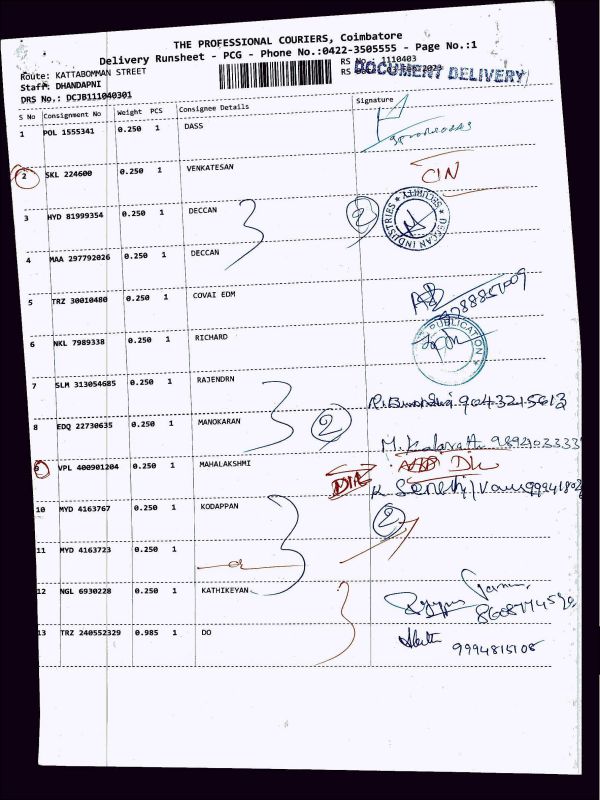 THE PROFESSIONAL COURIERS, Coimbatore
Delivery Runsheet - PCG - Phone No.:0422-3505555 - Page No.:1
Route: KATTABOMMAN STREET
RS No 1110403
Staff: DHANDAPNI
RS 2023
DOCUMENT DELIVERY
DRS No.: DCJB111040301
S No Consignment No Weight PCS Consignee Details Signature
1 POL 1555341 0.250 1 DASS
2 SKL 224600 0.250 1 VENKATESAN CIN
3 HYD 81999354 0.250 1 DECCAN 3 2
DECCAN INDUSTRIES ★ SECURITY ★
4 MAA 297792026 0.250 1 DECCAN
5 TRZ 30010480 0.250 1 COVAI EDM
6 NKL 7989338 0.250 1 RICHARD
PUBLICATION
7 SLM 313054685 0.250 1 RAJENDRN 3 9043245613
8 EDQ 22730635 0.250 1 MANOKARAN 2
9894033334
9 VPL 400901204 0.250 1 MAHALAKSHMI
10 MYD 4163767 0.250 1 KODAPPAN 3 2
11 MYD 4163723 0.250 1
12 NGL 6930228 0.250 1 KATHIKEYAN 3
13 TRZ 240552329 0.985 1 DO 9994815108